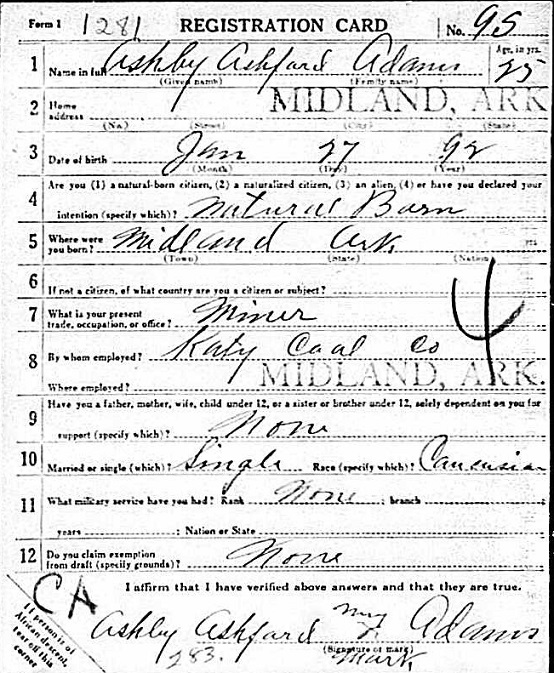 Form 1 1281 REGISTRATION CARD No. 95
1 Name in full Ashby Ashford Adams Age, in yrs. 25
(Given name) (Family name)
2 Home address MIDLAND, ARK
(No.) (Street) (City) (State)
3 Date of birth Jan 27 92
(Month) (Day) (Year)
4 Are you (1) a natural-born citizen, (2) a naturalized citizen, (3) an alien, (4) or have you declared your
intention (specify which)? Natural Born
5 Where were you born? Midland Ark.
(Town) (State) (Nation)
6 If not a citizen, of what country are you a citizen or subject?
7 What is your present trade, occupation, or office? Miner
4
8 By whom employed? Katy Coal Co
Where employed? MIDLAND, ARK.
9 Have you a father, mother, wife, child under 12, or a sister or brother under 12, solely dependent on you for
support (specify which)? None
10 Married or single (which)? Single Race (specify which)? Caucasian
11 What military service have you had? Rank None ; branch ;
years ; Nation or State
12 Do you claim exemption from draft (specify grounds)? None
I affirm that I have verified above answers and that they are true.
CA
If person is of
African descent,
tear off this
corner
Ashby Ashford Adams
(Signature or mark)
283. Mark